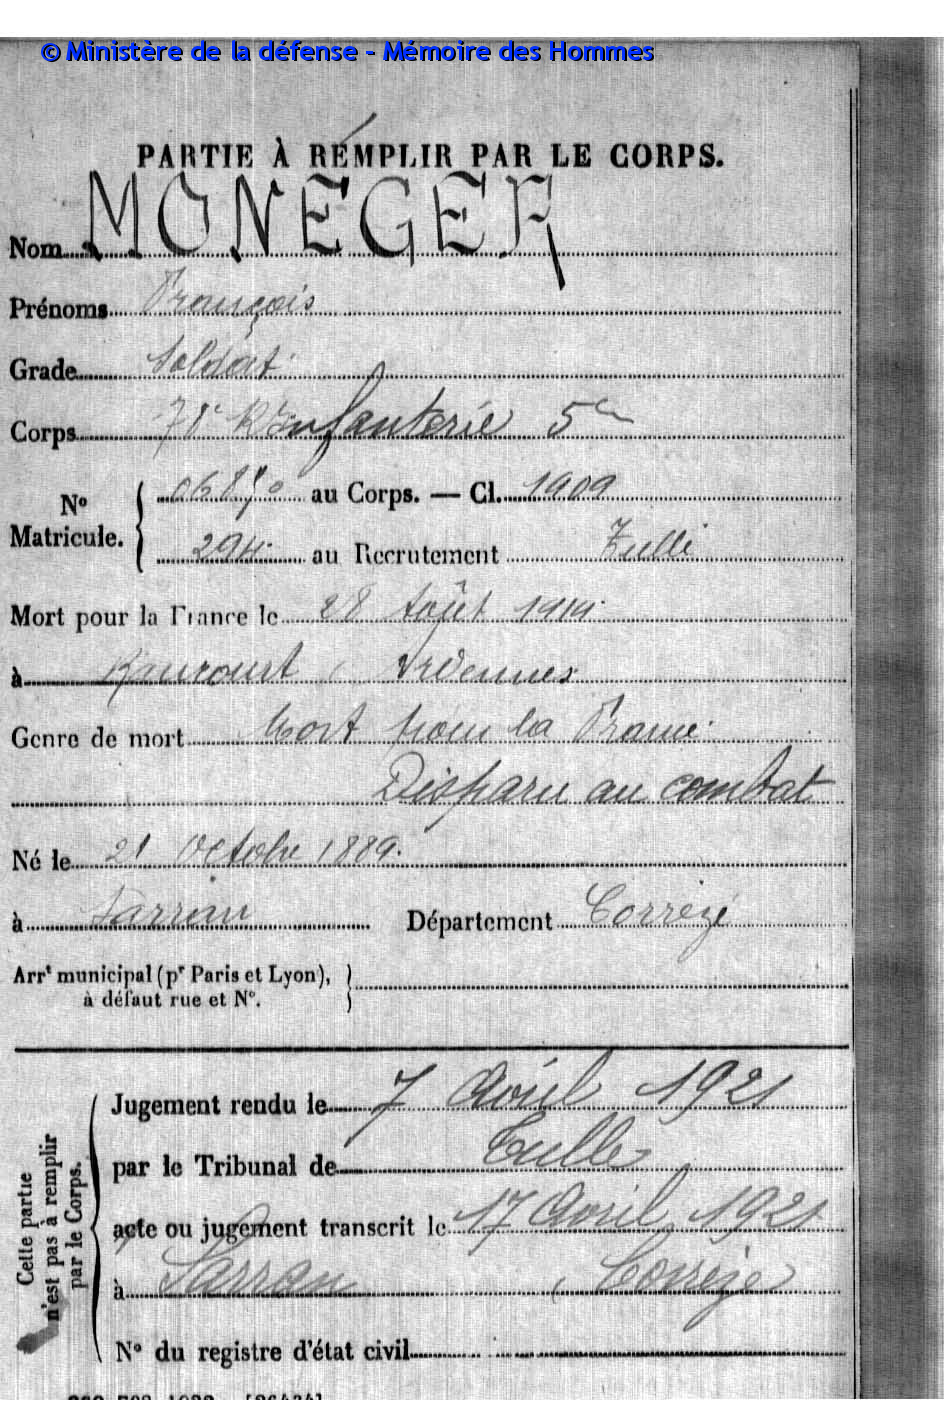 © Ministère de la défense - Mémoire des Hommes
PARTIE À REMPLIR PAR LE CORPS.
Nom MONEGER
Prénoms François
Grade Soldat
Corps Infanterie
No
Matricule.
au Corps. — Cl. 1909
294 au Recrutement Tulle
Mort pour la France le 28 Août 1914
à Raucourt (Ardennes
Genre de mort Mort pour la France
Disparu au combat
Né le 21 Octobre 1889.
à Sarran Département Corrèze
Arrt municipal (pr Paris et Lyon),
à défaut rue et No.
Jugement rendu le 7 Avril 1921
par le Tribunal de Tulle
acte ou jugement transcrit le 17 Avril 1921
à Sarran (Corrèze)
No du registre d'état civil
Cette partie
n'est pas à remplir
par le Corps.